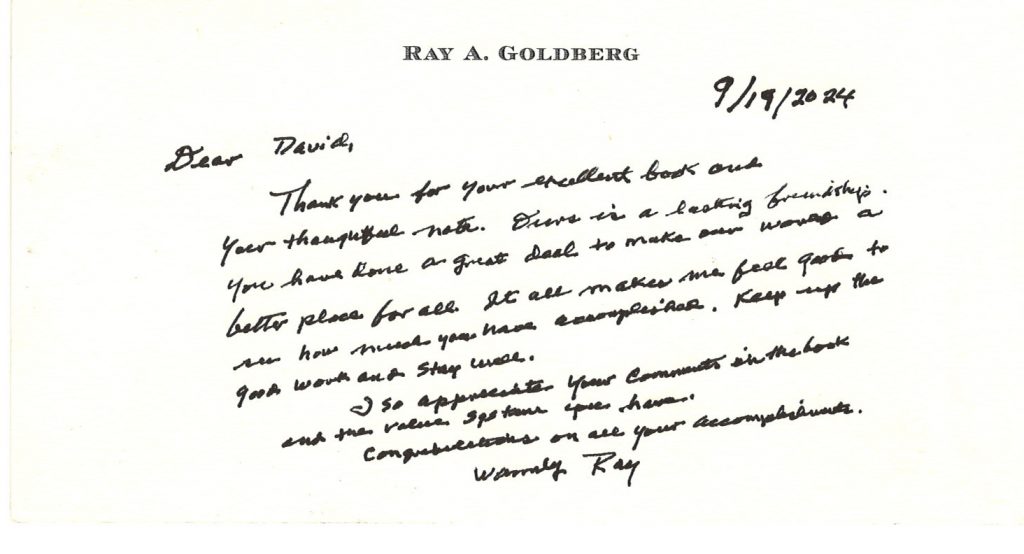 RAY A. GOLDBERG
9/19/2024
Dear David,
Thank you for your excellent book and
your thoughtful note. Ours is a lasting friendship.
You have done a great deal to make our world a
better place for all. It all makes me feel good to
see how much you have accomplished. Keep up the
good work and stay well.
I so appreciate your comments in the book
and the value system you have.
Congratulations on all your accomplishments.
Warmly Ray